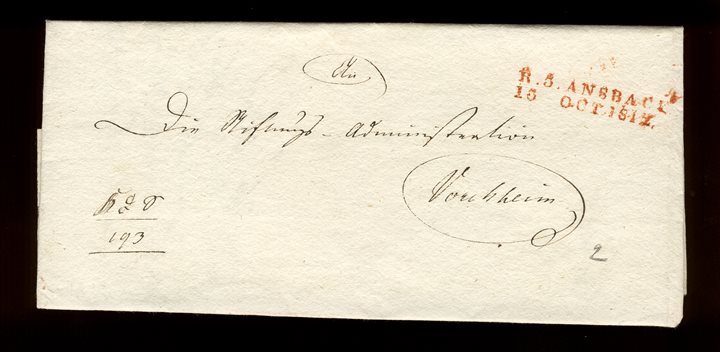 An
R. 5. ANSBACH
15 OCT. 1817.
Die Stiftungs-Administration
Vorchheim
193
2